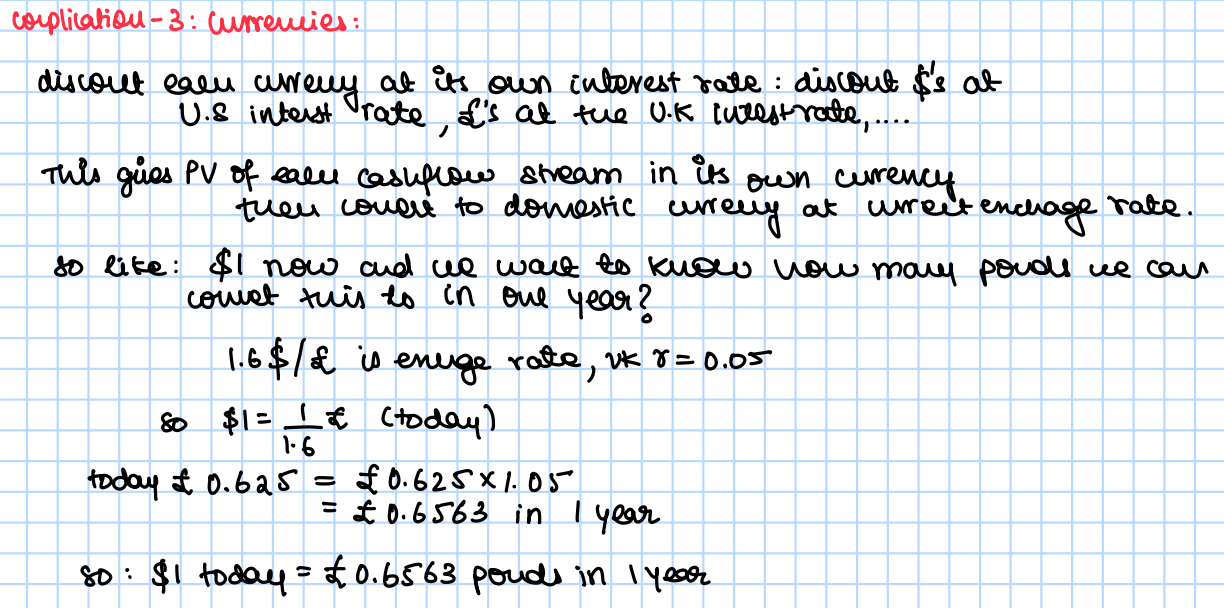 complication-3: Currencies:
discount each currency at its own interest rate: discount $'s at
U.S interest rate, £'s at the U.K interest rate,....
This gives PV of each cashflow stream in its own currency
then convert to domestic currency at current enchage rate.
so like: $1 now and we want to know how many pounds we can
convert this to in one year?
1.6$/£ is enuge rate, UK r=0.05
so $1 = 1/1.6 £ (today)
today £ 0.625 = £0.625×1.05
= £0.6563 in 1 year
so: $1 today = £0.6563 pounds in 1 year